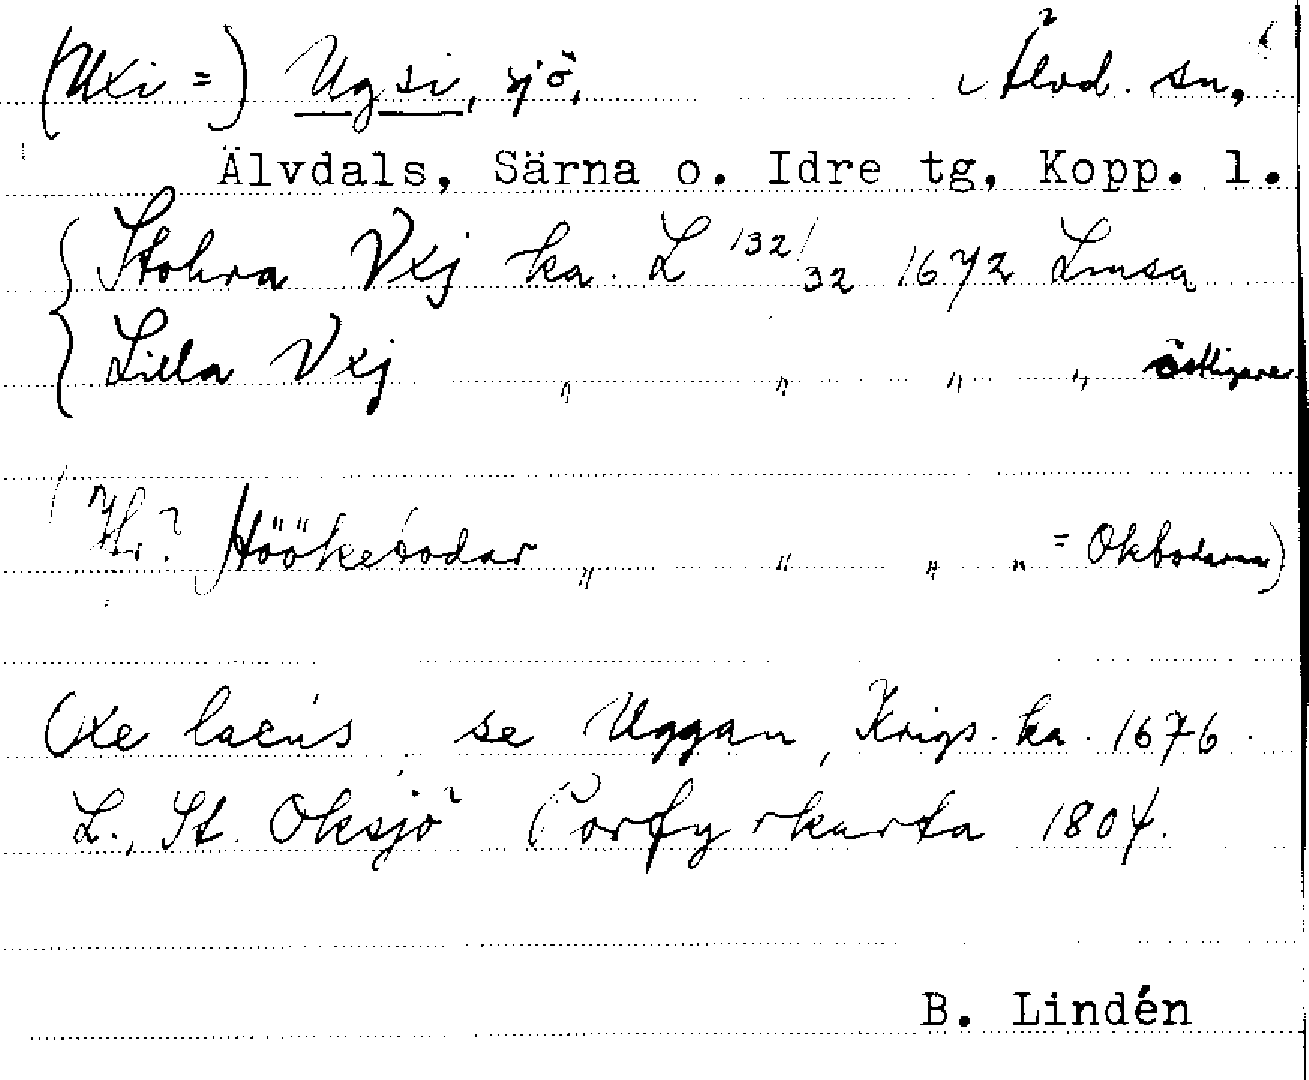 (Uxi =) Ugsi, sjö, Älvd. sn,
Älvdals, Särna o. Idre tg, Kopp. l.
Stohra Vxj ka. L 132/32 1672 Lmsa
Lilla Vxj " " " " östligare
(Hr? Höökebodar " " " " = Okbodarna)
Oxe lacus se Uggan, Krigs. ka. 1676
L., St. Oksjö Porfyrkarta 1804.
B. Lindén